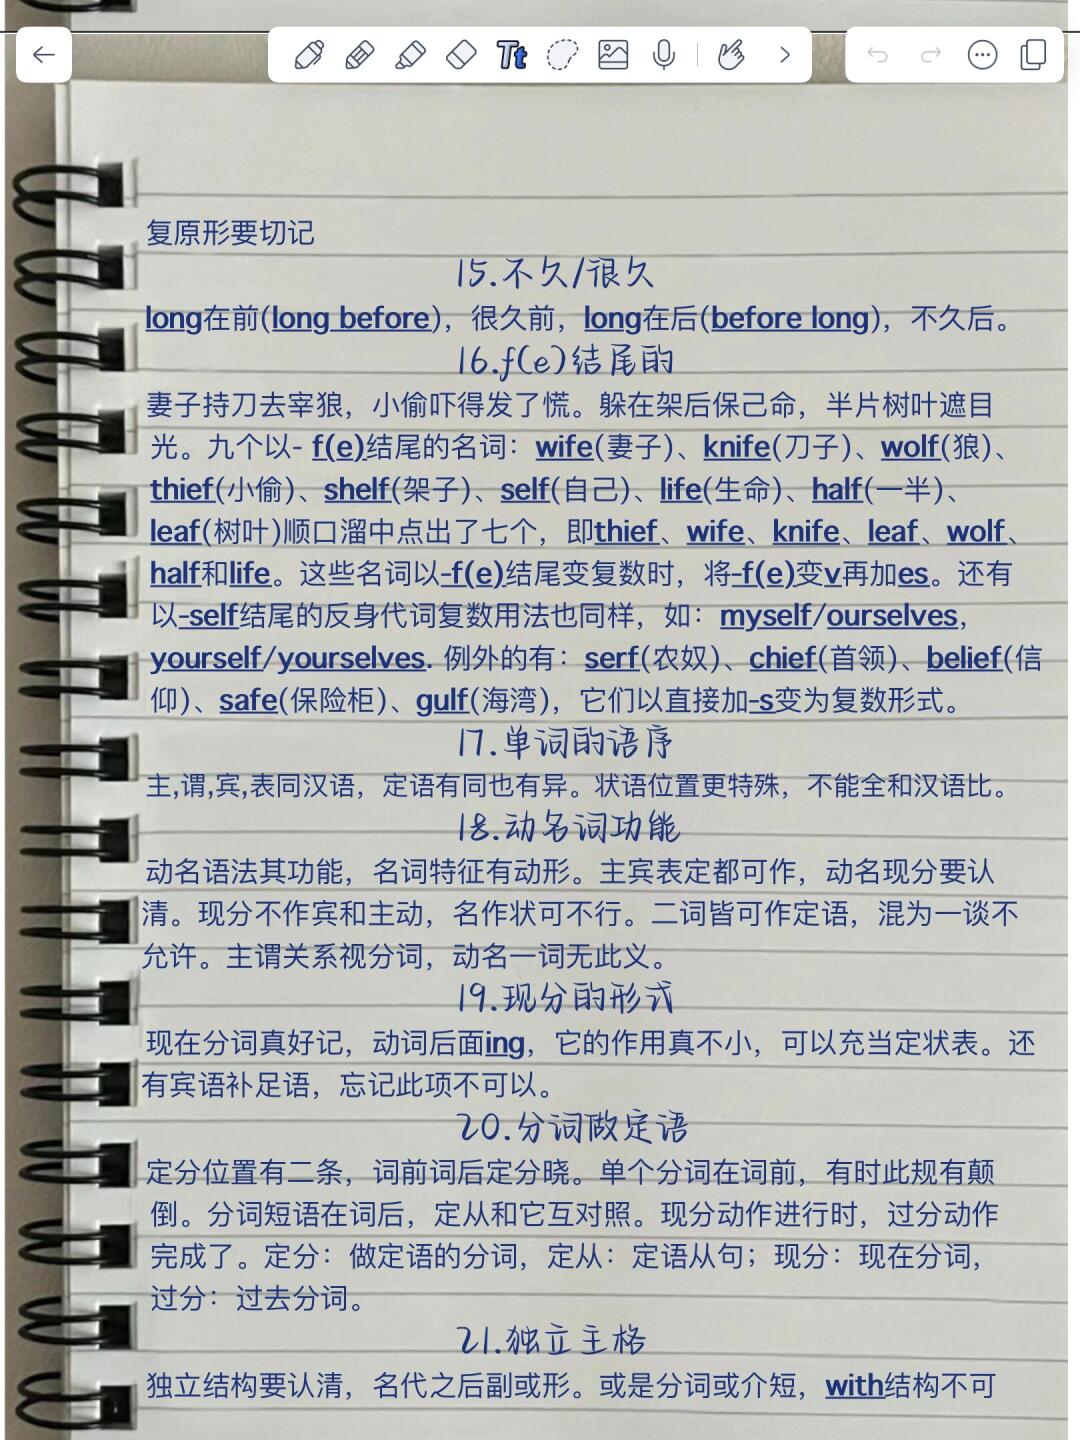 Tt
复原形要切记
15.不久/很久
long在前(long before)，很久前，long在后(before long)，不久后。
16.f(e)结尾的
妻子持刀去宰狼，小偷吓得发了慌。躲在架后保己命，半片树叶遮目
光。九个以- f(e)结尾的名词：wife(妻子)、knife(刀子)、wolf(狼)、
thief(小偷)、shelf(架子)、self(自己)、life(生命)、half(一半)、
leaf(树叶)顺口溜中点出了七个，即thief、wife、knife、leaf、wolf、
half和life。这些名词以-f(e)结尾变复数时，将-f(e)变v再加es。还有
以-self结尾的反身代词复数用法也同样，如：myself/ourselves，
yourself/yourselves. 例外的有：serf(农奴)、chief(首领)、belief(信
仰)、safe(保险柜)、gulf(海湾)，它们以直接加-s变为复数形式。
17.单词的语序
主,谓,宾,表同汉语，定语有同也有异。状语位置更特殊，不能全和汉语比。
18.动名词功能
动名语法其功能，名词特征有动形。主宾表定都可作，动名现分要认
清。现分不作宾和主动，名作状可不行。二词皆可作定语，混为一谈不
允许。主谓关系视分词，动名一词无此义。
19.现分的形式
现在分词真好记，动词后面ing，它的作用真不小，可以充当定状表。还
有宾语补足语，忘记此项不可以。
20.分词做定语
定分位置有二条，词前词后定分晓。单个分词在词前，有时此规有颠
倒。分词短语在词后，定从和它互对照。现分动作进行时，过分动作
完成了。定分：做定语的分词，定从：定语从句；现分：现在分词，
过分：过去分词。
21.独立主格
独立结构要认清，名代之后副或形。或是分词或介短，with结构不可